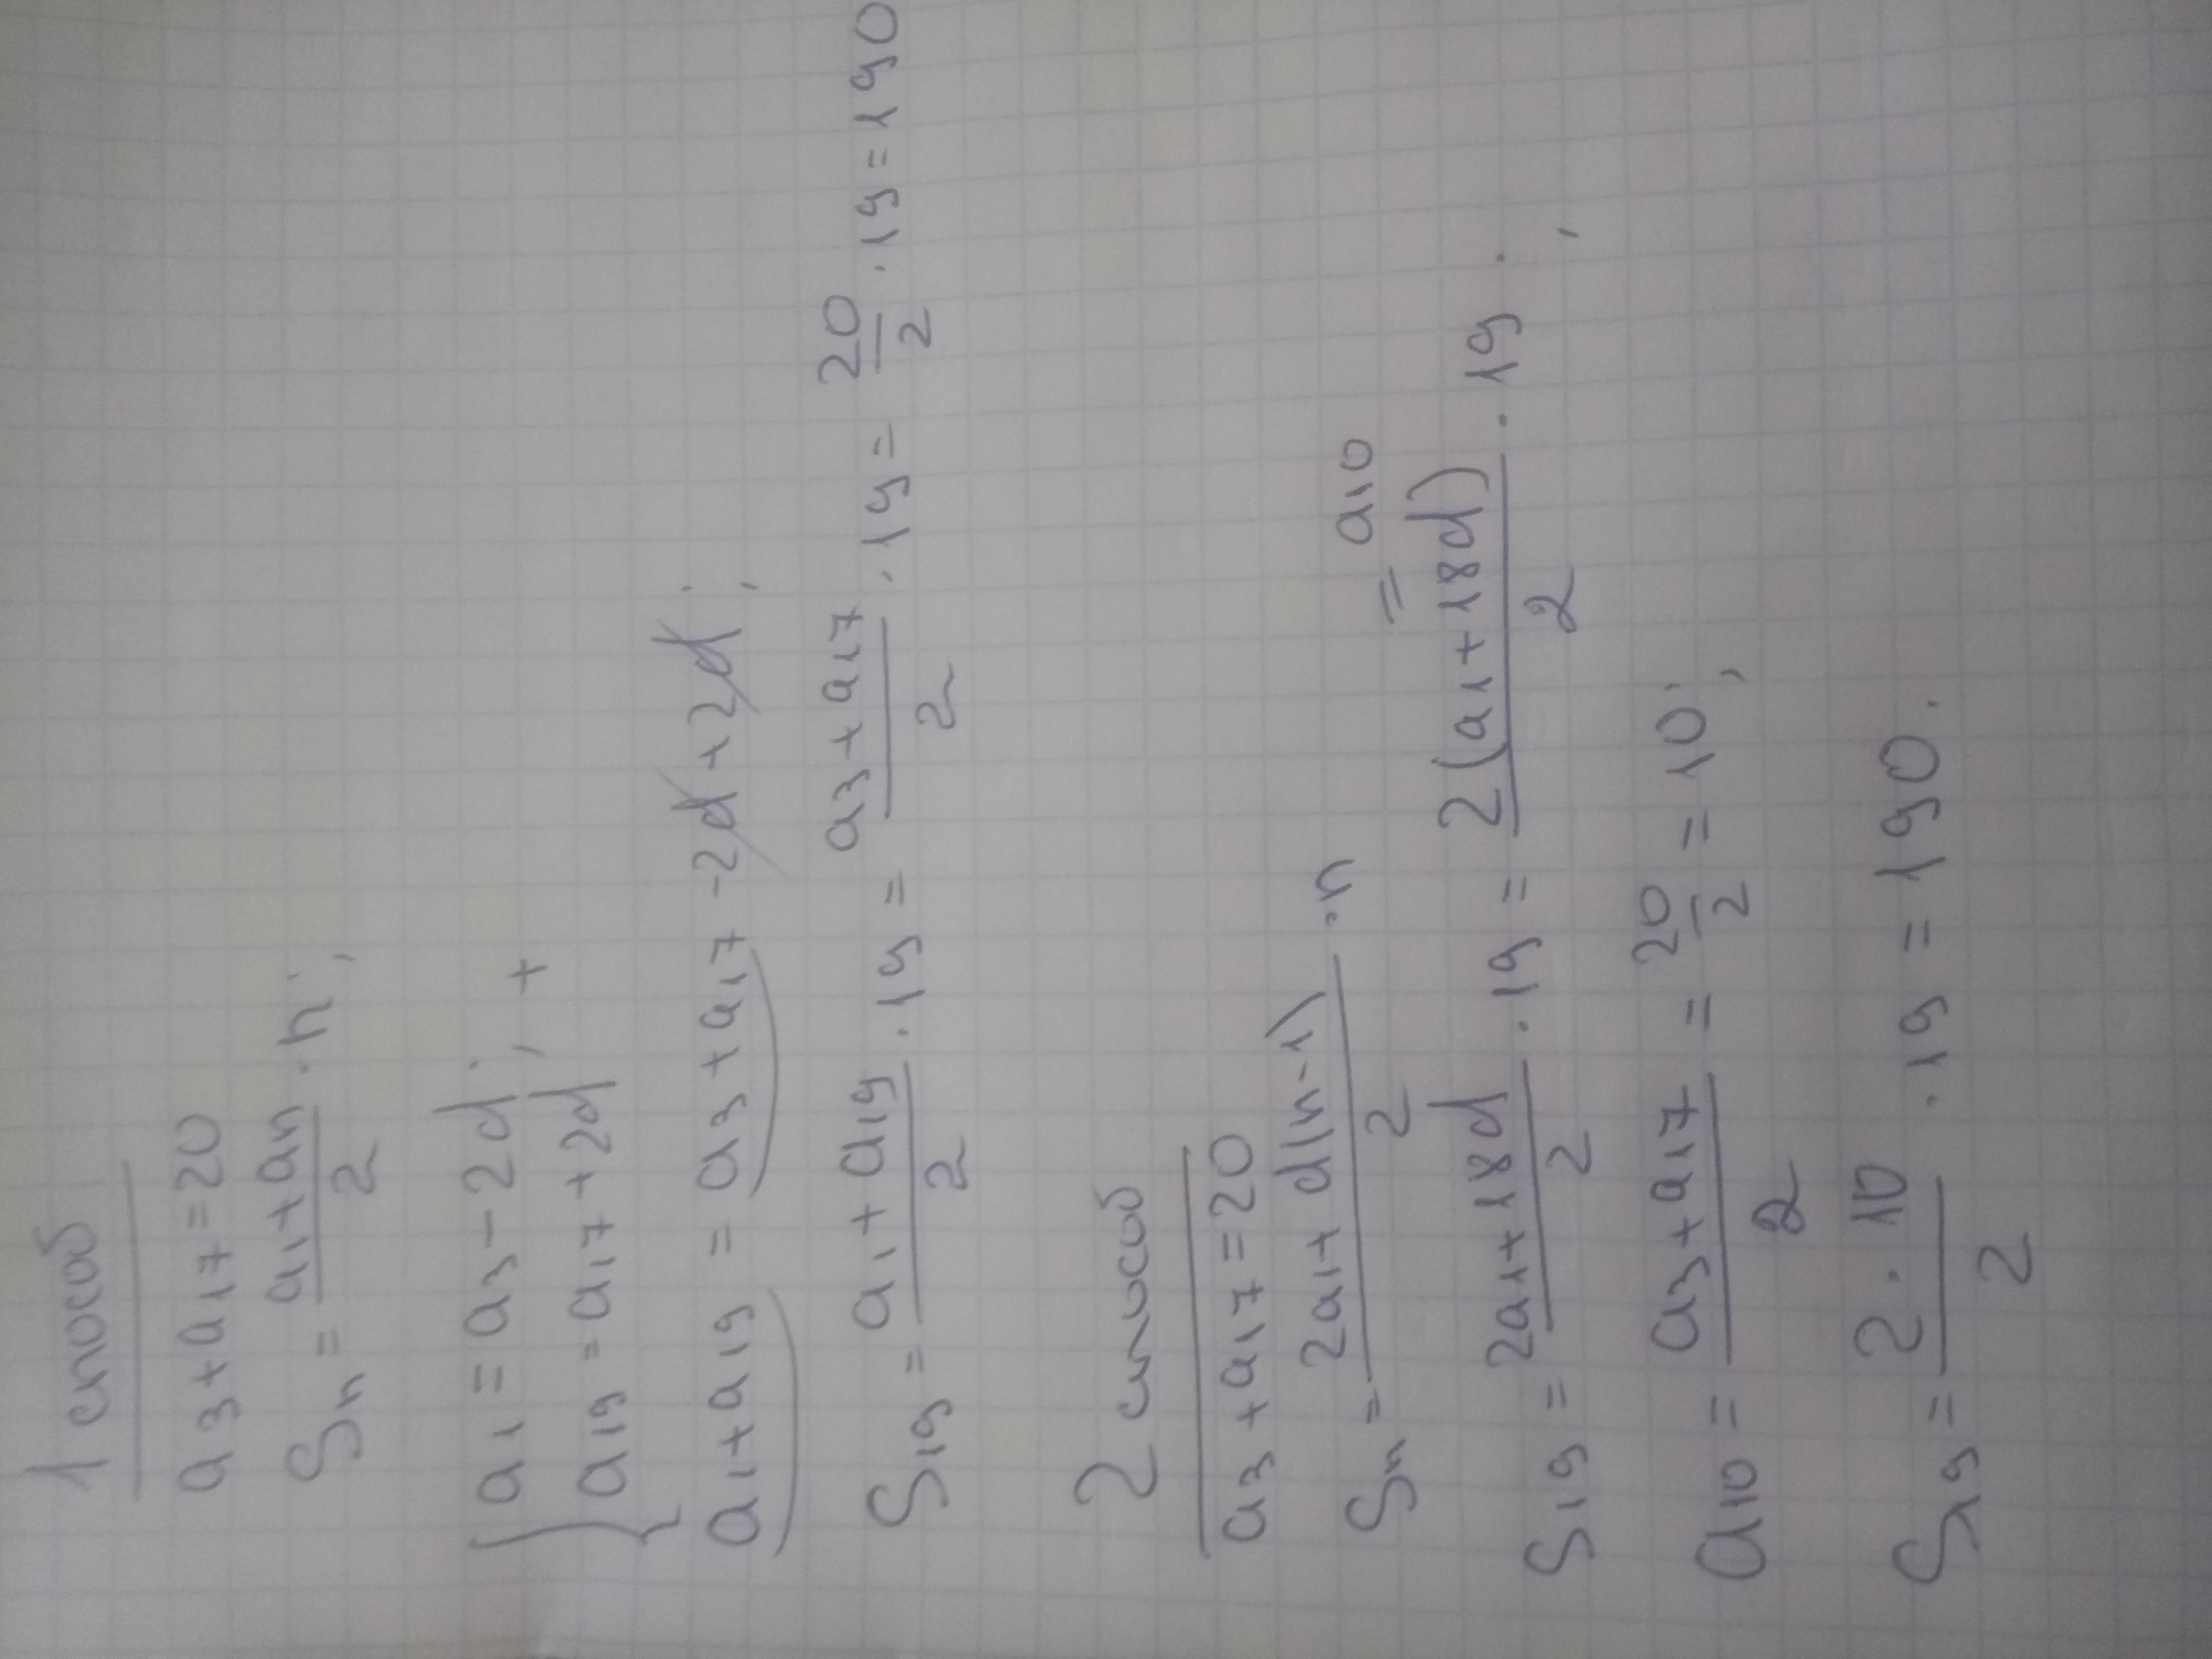 1 способ
a3 + a17 = 20
Sn = (a1 + an)/2 · n;
{ a1 = a3 - 2d; +
a19 = a17 + 2d
a1 + a19 = a3 + a17 - 2d + 2d;
S19 = (a1 + a19)/2 · 19 = (a3 + a17)/2 · 19 = 20/2 · 19 = 190
2 способ
a3 + a17 = 20
Sn = (2a1 + d(n-1))/2 · n
= a10
S19 = (2a1 + 18d)/2 · 19 = 2(a1 + 18d)/2 · 19 ;
a10 = (a3 + a17)/2 = 20/2 = 10;
S19 = (2 · 10)/2 · 19 = 190.